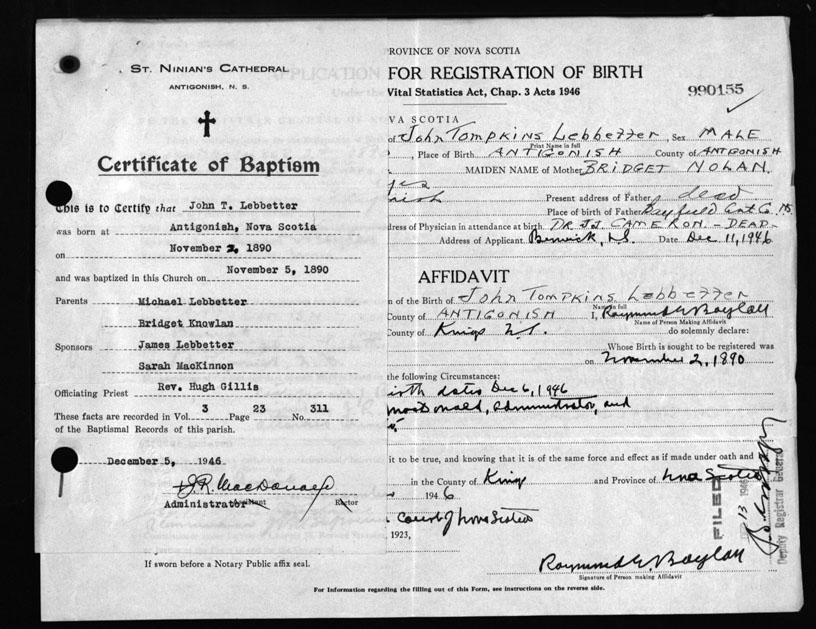 ST. NINIAN'S CATHEDRAL
ANTIGONISH, N. S.
Certificate of Baptism
This is to Certify that John T. Lebbetter
was born at Antigonish, Nova Scotia
on November 2, 1890
and was baptized in this Church on November 5, 1890
Parents Michael Lebbetter
Bridget Knowlan
Sponsors James Lebbetter
Sarah MacKinnon
Officiating Priest Rev. Hugh Gillis
These facts are recorded in Vol. 3 Page 23 No. 311
of the Baptismal Records of this parish.
December 5, 1946
J.R. MacDonald
Administrator Rector
If sworn before a Notary Public affix seal.
ROVINCE OF NOVA SCOTIA
FOR REGISTRATION OF BIRTH
Vital Statistics Act, Chap. 3 Acts 1946
990155
VA SCOTIA
of John Tompkins Lebbetter, Sex MALE
Print Name in full
, Place of Birth ANTIGONISH County of ANTIGONISH
MAIDEN NAME of Mother BRIDGET NOLAN
Present address of Father dead
Place of birth of Father
dress of Physician in attendance at birth DR. J.J. CAMERON - DEAD
Address of Applicant Berwick, N.S. Date Dec 11, 1946
AFFIDAVIT
n of the Birth of John Tompkins Lebbetter
Name in full
County of ANTIGONISH I, Raymond E. Baylall
Name of Person Making Affidavit
County of Kings N.S. do solemnly declare:
Whose Birth is sought to be registered was
on November 2, 1890
the following Circumstances:
birth dates Dec 6, 1946
MacDonald, administrator, and
it to be true, and knowing that it is of the same force and effect as if made under oath and
in the County of Kings and Province of Nova Scotia
1946
Court of Nova Scotia
1923,
FILED
13 1946
Deputy Registrar General
Signature of Person making Affidavit
For Information regarding the filling out of this Form, see instructions on the reverse side.